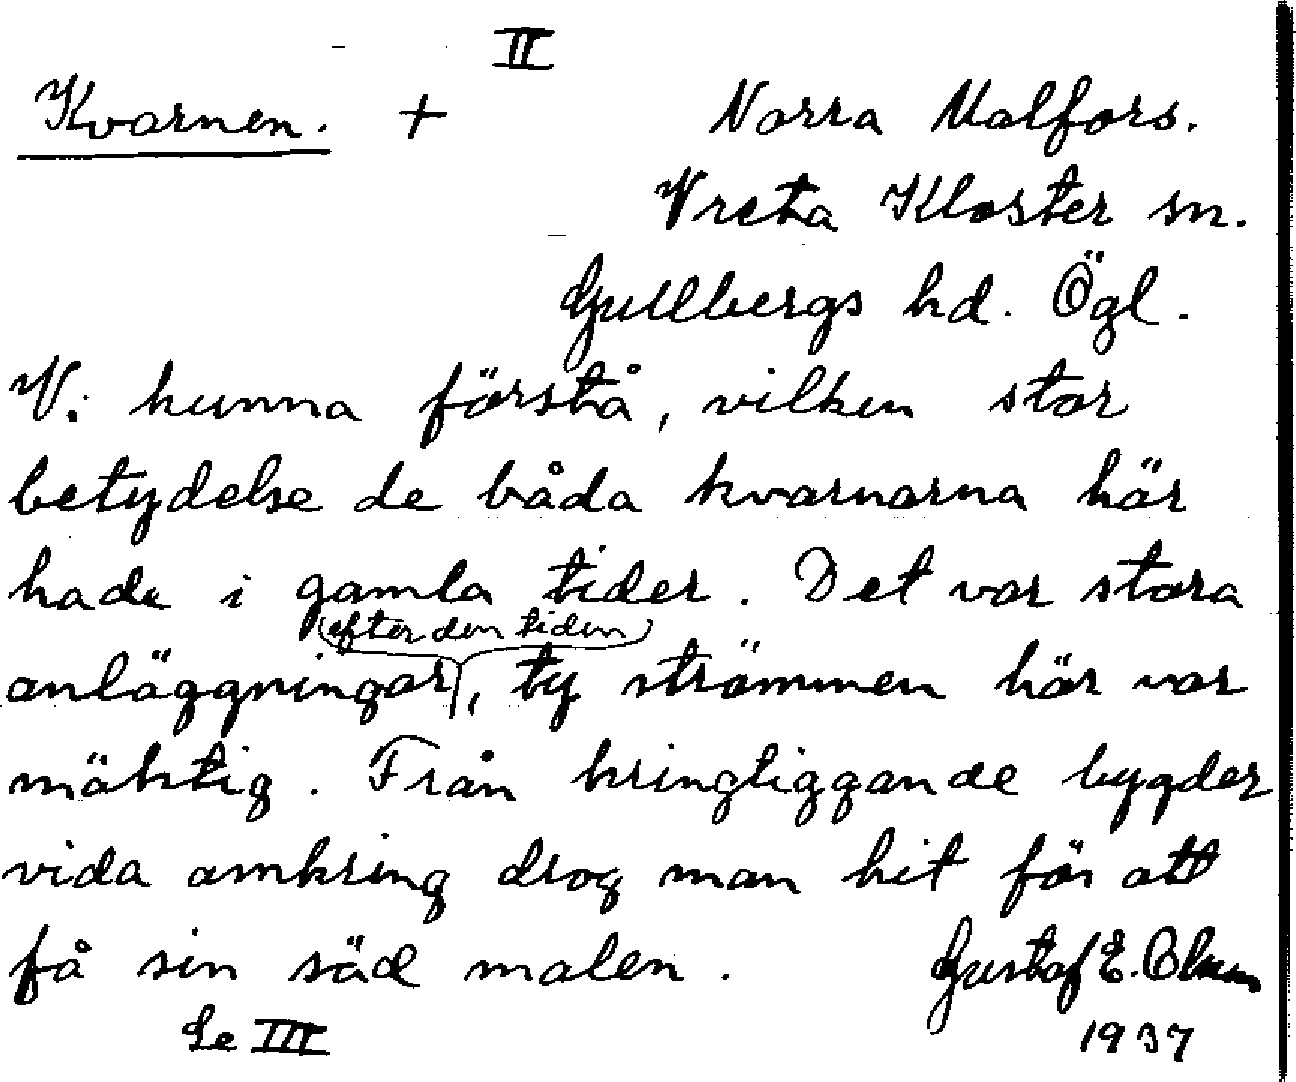 II
Kvarnen. + Norra Malfors.
Vreta Kloster sn.
Gullbergs hd. Ögl.
Vi kunna förstå, vilken stor
betydelse de båda kvarnarna här
hade i gamla tider. Det var stora
(efter den tiden)
anläggningar, ty strömmen här var
mäktig. Från kringliggande bygder
vida omkring drog man hit för att
få sin säd malen. Gustaf E. Olsson
Se III 1937